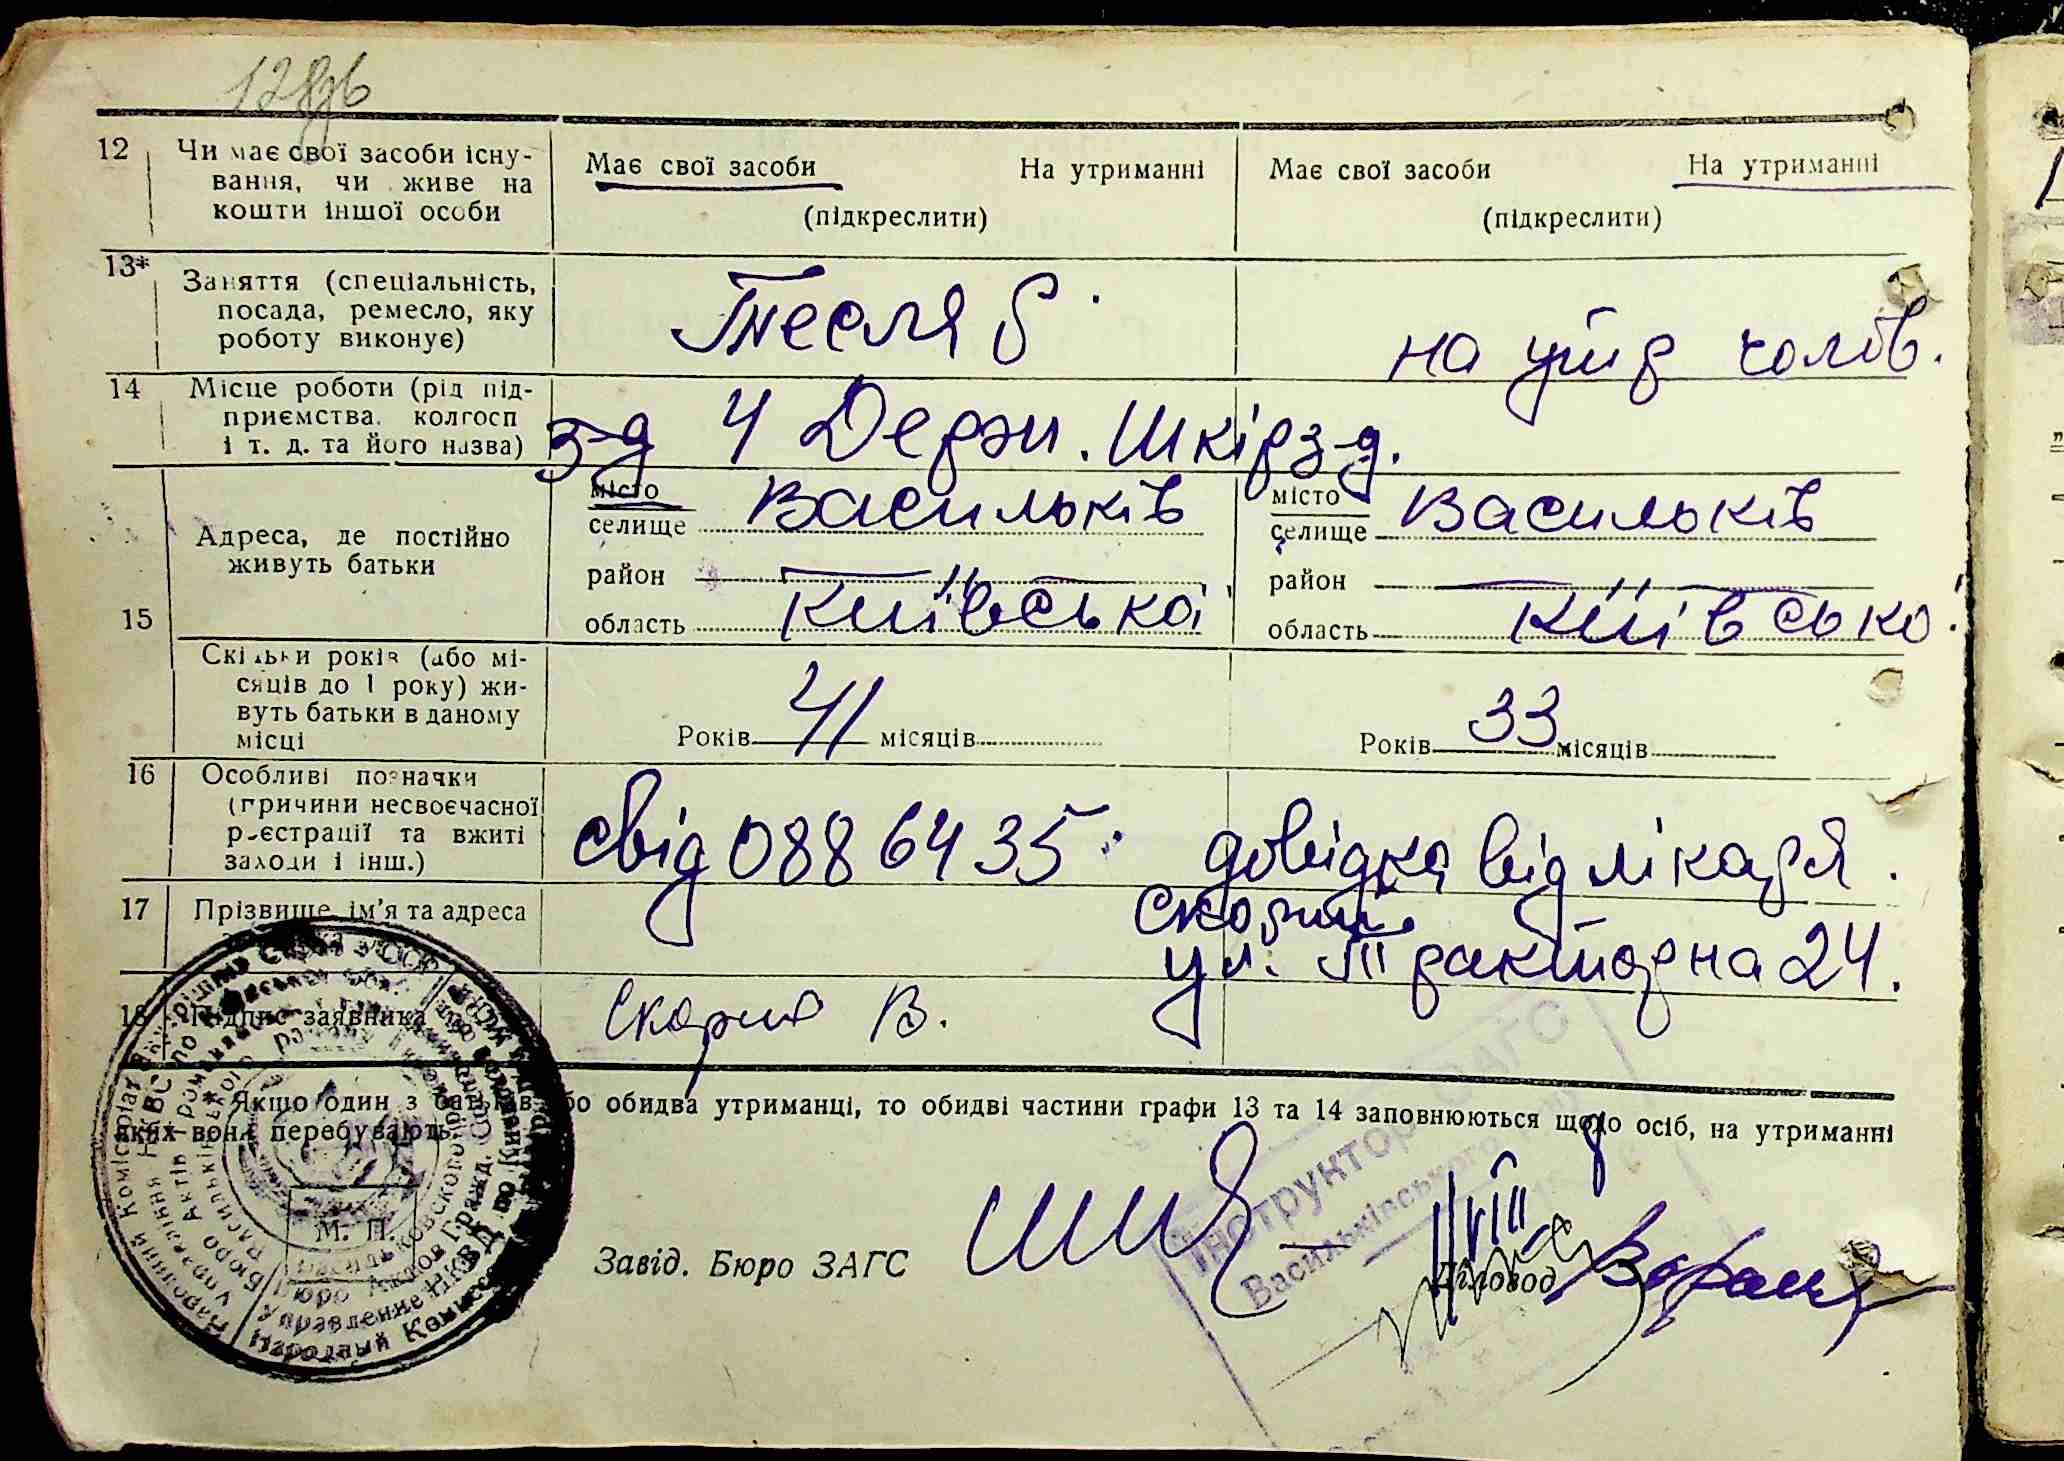 12
Чи має свої засоби існу-
вання, чи живе на
кошти іншої особи
Має свої засоби На утриманні
(підкреслити)
Має свої засоби На утриманні
(підкреслити)
13*
Заняття (спеціальність,
посада, ремесло, яку
роботу виконує)
Тесля
на утр чолов.
14
Місце роботи (рід під-
приємства, колгосп
і т. д. та його назва)
з-д 4 Держ. Шкірз-д.
15
Адреса, де постійно
живуть батьки
місто
селище Васильків
район
область Київська
місто
селище Васильків
район
область Київсько
Скільки років (або мі-
сяців до 1 року) жи-
вуть батьки в даному
місці
Років 41 місяців
Років 33 місяців
16
Особливі позначки
(причини несвоєчасної
реєстрації та вжиті
заходи і інш.)
свід 0886435
довідка від лікаря.
17
Прізвище, ім'я та адреса
ул. Тракторна 24.
18 Підпис заявника
Скорик В.
* Якщо один з батьків або обидва утриманці, то обидві частини графи 13 та 14 заповнюються щодо осіб, на утриманні
яких вони перебувають.
М. П.
Завід. Бюро ЗАГС
Діловод
Інструктор ЗАГС
Васильківського